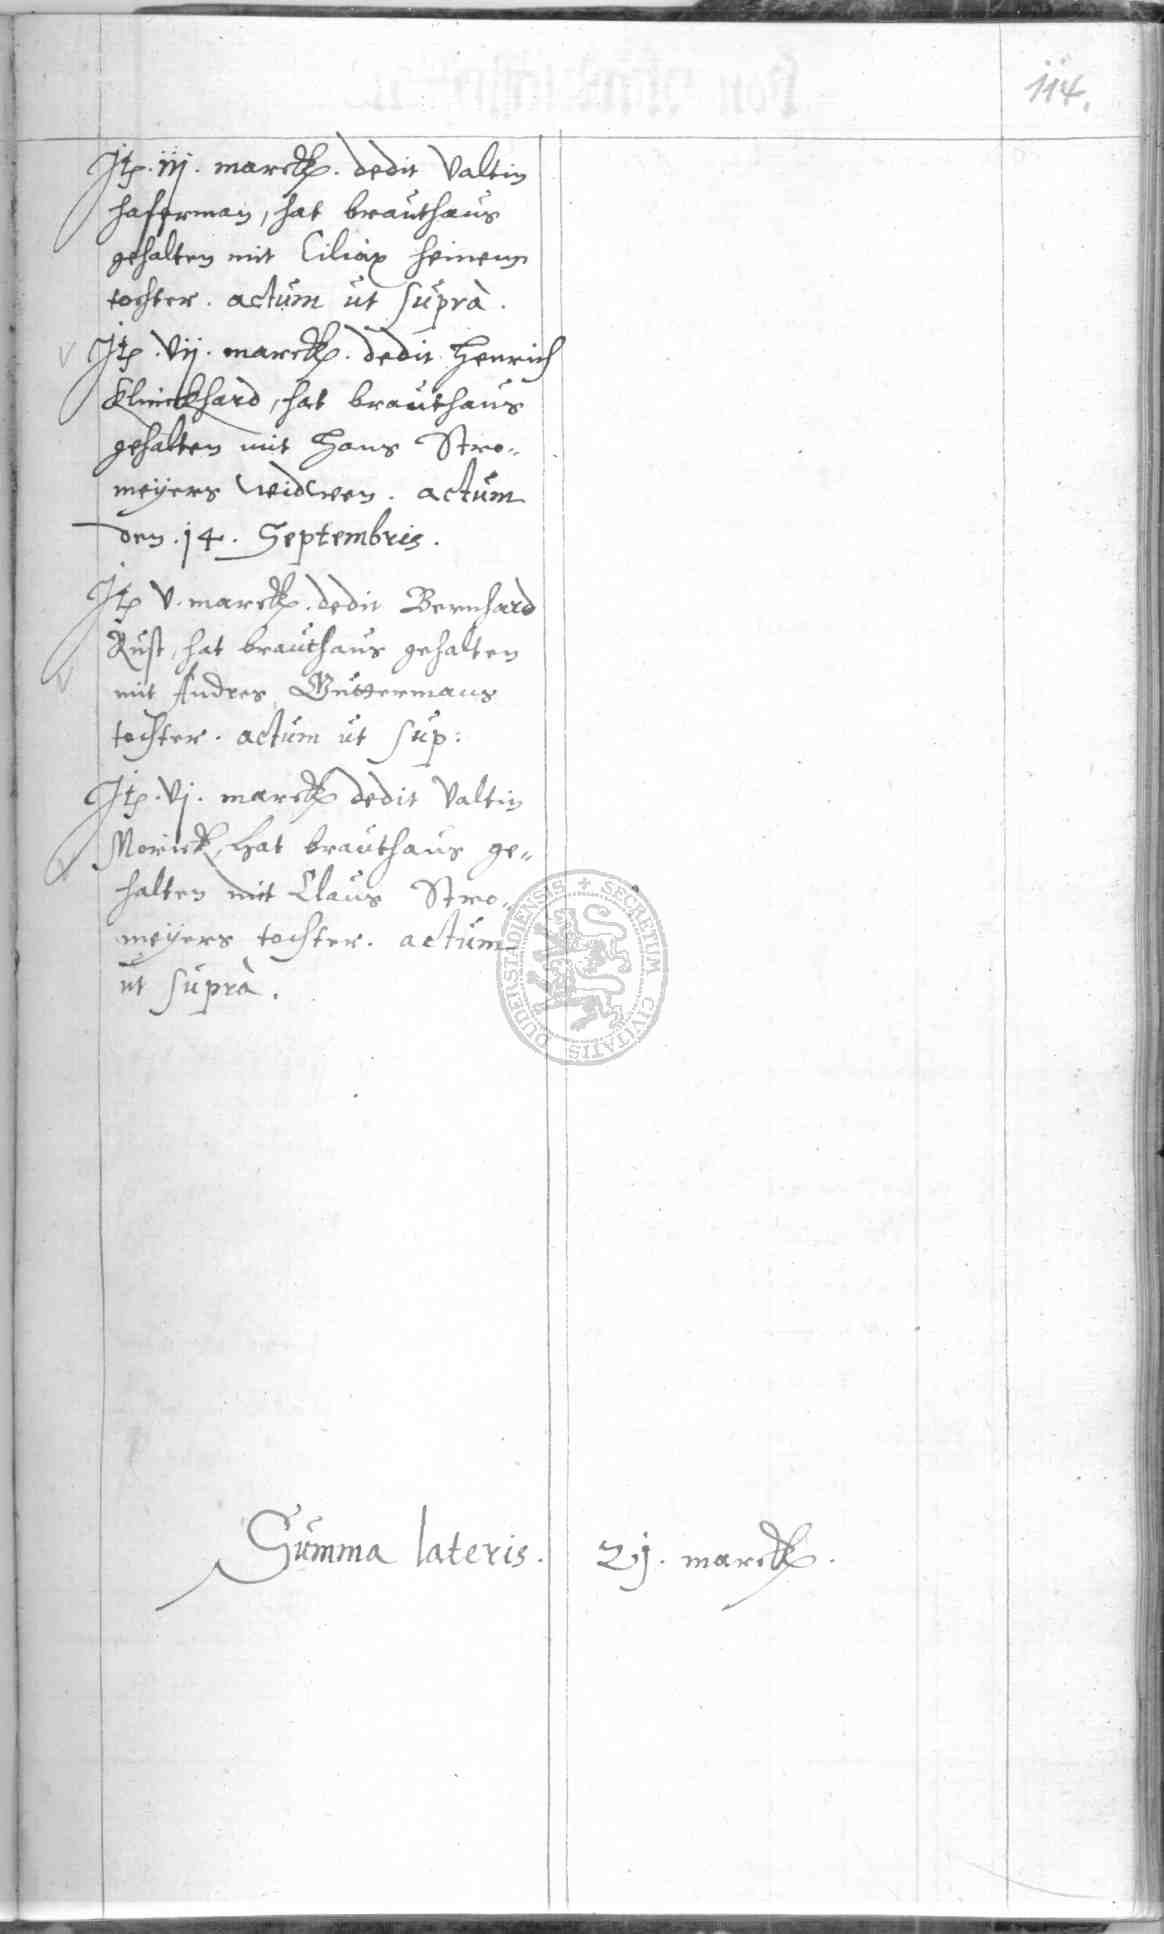 114.
Itp. iij. marck. dedit Valtin
haferman, hat brauthaus
gehalten mit Ciliax heinen
tochter. actum ut suprà.
Itp. vij. marck. dedit Henrich
Klinckhard, hat brauthaus
gehalten mit Hans Stro=
meÿers widwen. actum
den. 14. Septembris.
Itp v. marck. dedit Bernhard
Rust, hat brauthaus gehalten
mit Andres Guttermans
tochter. actum ut sup:
Itp. vj. marck dedit Valtin
Morick, hat brauthaus ge=
halten mit Claus Stro=
meÿers tochter. actum
ut suprà.
SECRETUM CIVITATIS DUDERSTADIENSIS
Summa lateris. 21. marck.